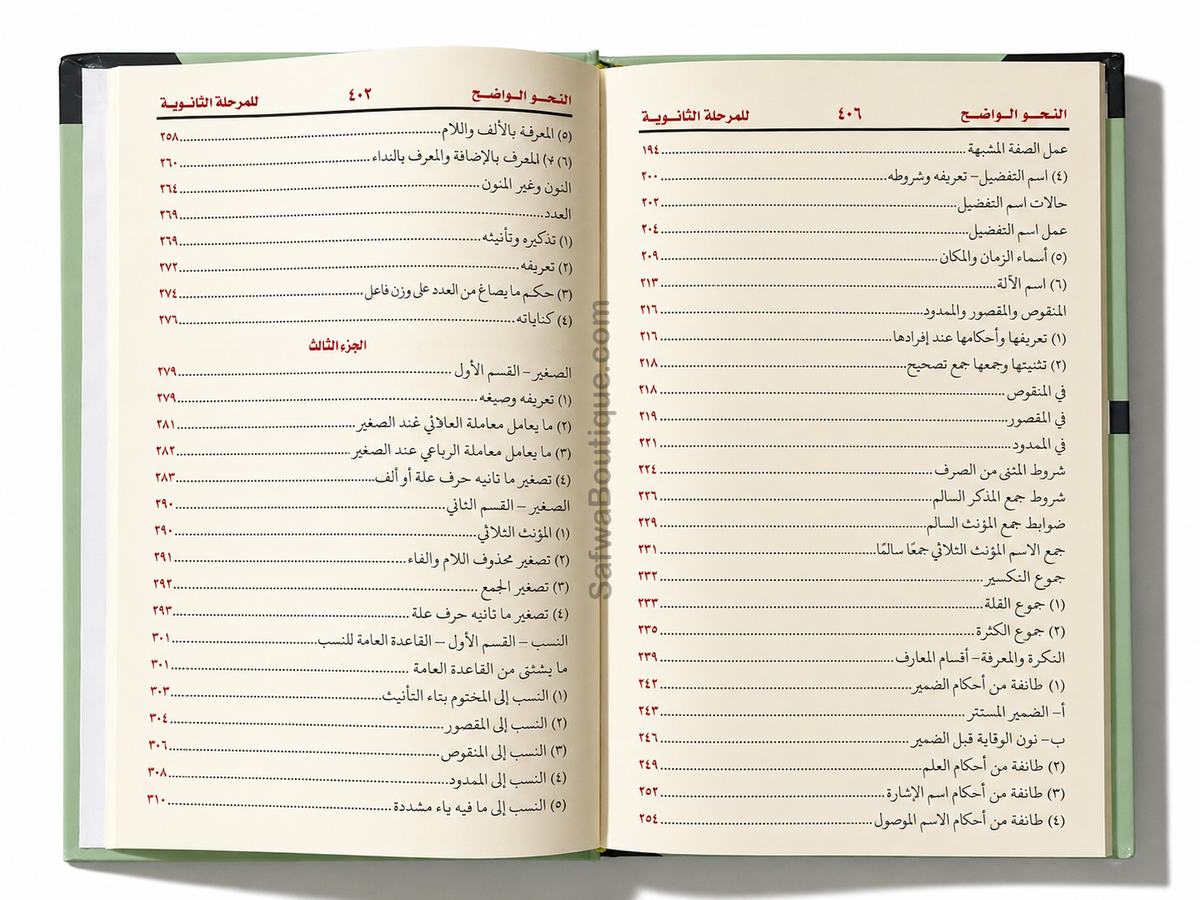 النحو الواضح ٤٠٦ للمرحلة الثانوية
عمل الصفة المشبهة ١٩٤
(٤) اسم التفضيل – تعريفه وشروطه ٢٠٠
حالات اسم التفضيل ٢٠٢
عمل اسم التفضيل ٢٠٤
(٥) أسماء الزمان والمكان ٢٠٩
(٦) اسم الآلة ٢١٣
المنقوص والمقصور والممدود ٢١٦
(١) تعريفها وأحكامها عند إفرادها ٢١٦
(٢) تثنيتها وجمعها جمع تصحيح ٢١٨
في المنقوص ٢١٨
في المقصور ٢١٩
في الممدود ٢٢١
شروط المثنى من الصرف ٢٢٤
شروط جمع المذكر السالم ٢٢٦
ضوابط جمع المؤنث السالم ٢٢٩
جمع الاسم المؤنث الثلاثي جمعًا سالمًا ٢٣١
جموع النكسير ٢٣٢
(١) جموع القلة ٢٣٣
(٢) جموع الكثرة ٢٣٥
النكرة والمعرفة – أقسام المعارف ٢٣٩
(١) طائفة من أحكام الضمير ٢٤٢
أ– الضمير المستتر ٢٤٣
ب– نون الوقاية قبل الضمير ٢٤٦
(٢) طائفة من أحكام العلم ٢٤٩
(٣) طائفة من أحكام اسم الإشارة ٢٥٢
(٤) طائفة من أحكام الاسم الموصول ٢٥٤
النحو الواضح ٤٠٢ للمرحلة الثانوية
(٥) المعرفة بالألف واللام ٢٥٨
(٦) ٧) المعرف بالإضافة والمعرف بالنداء ٢٦٠
النون وغير المنون ٢٦٤
العدد ٢٦٩
(١) تذكيره وتأنيثه ٢٦٩
(٢) تعريفه ٢٧٢
(٣) حكم ما يصاغ من العدد على وزن فاعل ٢٧٤
(٤) كناياته ٢٧٦
الجزء الثالث
الصغير – القسم الأول ٢٧٩
(١) تعريفه وصيغه ٢٧٩
(٢) ما يعامل معاملة العلاثي غند الصغير ٢٨١
(٣) ما يعامل معاملة الرباعي عند الصغير ٢٨٢
(٤) تصغير ما ثانيه حرف علة أو ألف ٢٨٣
الصغير – القسم الثاني ٢٩٠
(١) المؤنث الثلاثي ٢٩٠
(٢) تصغير محذوف اللام والفاء ٢٩١
(٣) تصغير الجمع ٢٩٢
(٤) تصغير ما ثانيه حرف علة ٢٩٣
النسب – القسم الأول – القاعدة العامة للنسب ٣٠١
ما يشثنى من القاعدة العامة ٣٠١
(١) النسب إلى المختوم بتاء التأنيث ٣٠٣
(٢) النسب إلى المقصور ٣٠٤
(٣) النسب إلى المنقوص ٣٠٦
(٤) النسب إلى الممدود ٣٠٨
(٥) النسب إلى ما فيه ياء مشددة ٣١٠
SafwaBoutique.com